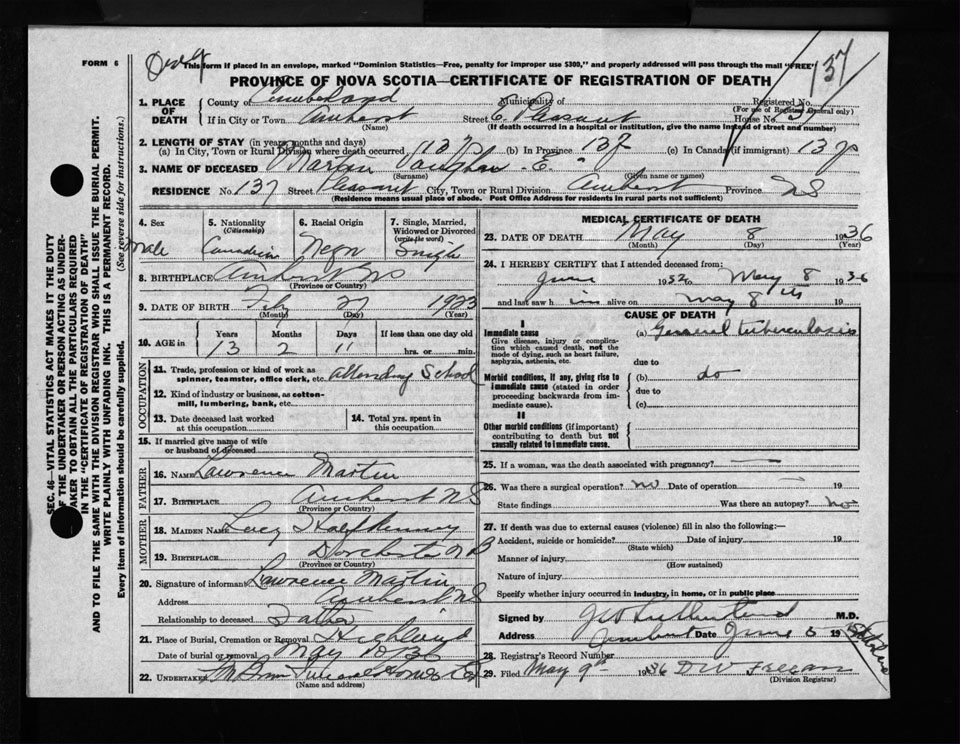 FORM 6
This form if placed in an envelope, marked "Dominion Statistics—Free, penalty for improper use $300," and properly addressed will pass through the mail "FREE"
137
PROVINCE OF NOVA SCOTIA—CERTIFICATE OF REGISTRATION OF DEATH
1. PLACE OF DEATH
County of Cumberland Municipality of Registered No.
(For use of Registrar General only)
If in City or Town Amherst Street E. Pleasant House No.
(Name) (If death occurred in a hospital or institution, give the name instead of street and number)
2. LENGTH OF STAY (in years, months and days)
(a) In City, Town or Rural Division where death occurred 13 y (b) In Province 13 y (c) In Canada (if immigrant) 13 y
3. NAME OF DECEASED Martin Vaughn E.
(Surname) (Given name or names)
RESIDENCE No. 137 Street Pleasant City, Town or Rural Division Amherst Province NS
(Residence means usual place of abode. Post Office Address for residents in rural parts not sufficient)
4. Sex
5. Nationality (Citizenship)
6. Racial Origin
7. Single, Married, Widowed or Divorced (write the word)
Male Canadian Negro Single
8. BIRTHPLACE Amherst NS
(Province or Country)
9. DATE OF BIRTH Feb 27 1923
(Month) (Day) (Year)
10. AGE in
Years Months Days If less than one day old
13 2 11 hrs. or min.
OCCUPATION
11. Trade, profession or kind of work as spinner, teamster, office clerk, etc. Attending School
12. Kind of industry or business, as cotton-mill, lumbering, bank, etc.
13. Date deceased last worked at this occupation
14. Total yrs. spent in this occupation
15. If married give name of wife or husband of deceased
FATHER
16. NAME Lawrence Martin
17. BIRTHPLACE Amherst NS
(Province or Country)
MOTHER
18. MAIDEN NAME Halfkenny
19. BIRTHPLACE Dorchester NB
(Province or Country)
20. Signature of informant Lawrence Martin
Address Amherst NS
Relationship to deceased Father
21. Place of Burial, Cremation or Removal Highland
Date of burial or removal May 36
22. UNDERTAKER Funeral Home
(Name and address)
MEDICAL CERTIFICATE OF DEATH
23. DATE OF DEATH May 8 1936
(Month) (Day) (Year)
24. I HEREBY CERTIFY that I attended deceased from:
June 1932 to May 8 1936
and last saw h im alive on May 8th 19
CAUSE OF DEATH
I
Immediate cause (a) General Tuberculosis
Give disease, injury or complication which caused death, not the mode of dying, such as heart failure, asphyxia, asthenia, etc.
due to
Morbid conditions, if any, giving rise to immediate cause (stated in order proceeding backwards from immediate cause).
(b) do
due to
(c)
II
Other morbid conditions (if important) contributing to death but not causally related to immediate cause.
25. If a woman, was the death associated with pregnancy? —
26. Was there a surgical operation? no Date of operation — 19
State findings Was there an autopsy? no
27. If death was due to external causes (violence) fill in also the following:—
Accident, suicide or homicide? Date of injury 19
(State which)
Manner of injury
(How sustained)
Nature of injury
Specify whether injury occurred in industry, in home, or in public place
Signed by Sutherland M.D.
Address Amherst Date June 19
28. Registrar's Record Number
29. Filed May 9th 1936
(Division Registrar)
SEC. 46—VITAL STATISTICS ACT MAKES IT THE DUTY
OF THE UNDERTAKER OR PERSON ACTING AS UNDER-
TAKER TO OBTAIN ALL THE PARTICULARS REQUIRED
IN THE "CERTIFICATE OF REGISTRATION OF DEATH"
AND TO FILE THE SAME WITH THE DIVISION REGISTRAR WHO SHALL ISSUE THE BURIAL PERMIT.
WRITE PLAINLY WITH UNFADING INK. THIS IS A PERMANENT RECORD.
Every item of information should be carefully supplied. (See reverse side for instructions.)